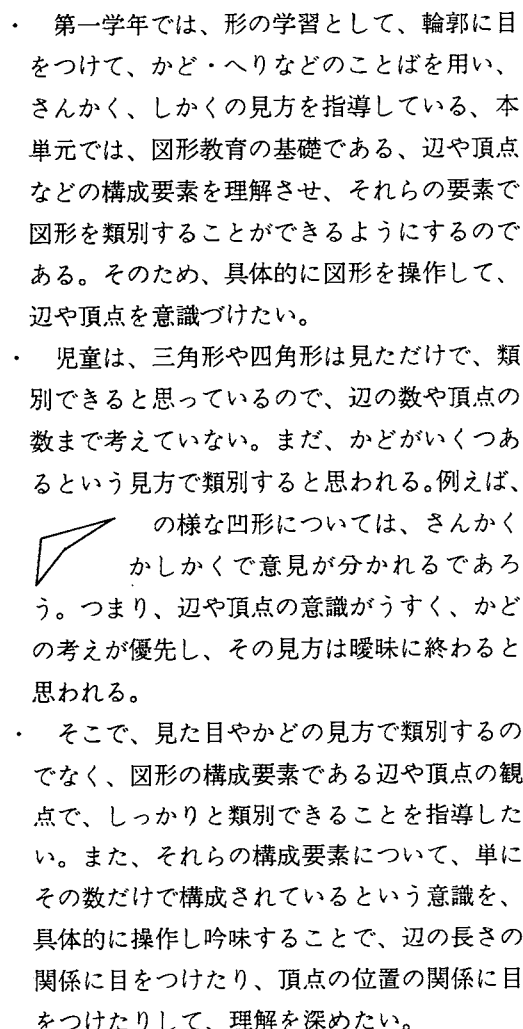 ・　第一学年では、形の学習として、輪郭に目
をつけて、かど・へりなどのことばを用い、
さんかく、しかくの見方を指導している、本
単元では、図形教育の基礎である、辺や頂点
などの構成要素を理解させ、それらの要素で
図形を類別することができるようにするので
ある。そのため、具体的に図形を操作して、
辺や頂点を意識づけたい。
・　児童は、三角形や四角形は見ただけで、類
別できると思っているので、辺の数や頂点の
数まで考えていない。まだ、かどがいくつあ
るという見方で類別すると思われる。例えば、
の様な凹形については、さんかく
かしかくで意見が分かれるであろ
う。つまり、辺や頂点の意識がうすく、かど
の考えが優先し、その見方は曖昧に終わると
思われる。
・　そこで、見た目やかどの見方で類別するの
でなく、図形の構成要素である辺や頂点の観
点で、しっかりと類別できることを指導した
い。また、それらの構成要素について、単に
その数だけで構成されているという意識を、
具体的に操作し吟味することで、辺の長さの
関係に目をつけたり、頂点の位置の関係に目
をつけたりして、理解を深めたい。